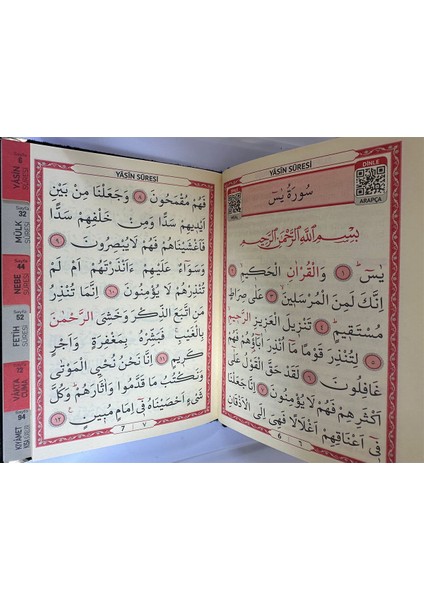 YÂSİN SÛRESİ
DİNLE
ARAPÇA
سُورَةُ يٰسٓ
بِسْمِ اللّٰهِ الرَّحْمٰنِ الرَّحِيمِ
يٰسٓ ١ وَالْقُرْاٰنِ الْحَكِيمِ ٢
اِنَّكَ لَمِنَ الْمُرْسَلِينَ ٣ عَلٰى صِرَاطٍ
مُسْتَقِيمٍ ٤ تَنْزِيلَ الْعَزِيزِ الرَّحِيمِ ٥
لِتُنْذِرَ قَوْمًا مَٓا اُنْذِرَ اٰبَٓاؤُهُمْ فَهُمْ
غَافِلُونَ ٦ لَقَدْ حَقَّ الْقَوْلُ عَلٰٓى
اَكْثَرِهِمْ فَهُمْ لَا يُؤْمِنُونَ ٧ اِنَّا جَعَلْنَا
فِٓي اَعْنَاقِهِمْ اَغْلَالًا فَهِيَ اِلَى الْاَذْقَانِ
6 ٦
YÂSİN SÛRESİ
فَهُمْ مُقْمَحُونَ ٨ وَجَعَلْنَا مِنْ بَيْنِ
اَيْدِيهِمْ سَدًّا وَمِنْ خَلْفِهِمْ سَدًّا
فَاَغْشَيْنَاهُمْ فَهُمْ لَا يُبْصِرُونَ ٩
وَسَوَٓاءٌ عَلَيْهِمْ ءَاَنْذَرْتَهُمْ اَمْ لَمْ
تُنْذِرْهُمْ لَا يُؤْمِنُونَ ١٠ اِنَّمَا تُنْذِرُ
مَنِ اتَّبَعَ الذِّكْرَ وَخَشِيَ الرَّحْمٰنَ
بِالْغَيْبِ فَبَشِّرْهُ بِمَغْفِرَةٍ وَاَجْرٍ
كَرِيمٍ ١١ اِنَّا نَحْنُ نُحْيِي الْمَوْتٰى
وَنَكْتُبُ مَا قَدَّمُوا وَاٰثَارَهُمْ وَكُلَّ
شَيْءٍ اَحْصَيْنَاهُ فِٓي اِمَامٍ مُبِينٍ ١٢
7 ٧
Sayfa 6 YÂSİN SÛRESİ
Sayfa 32 MÜLK SÛRESİ
Sayfa 44 NEBE SÛRESİ
Sayfa 52 FETİH SÛRESİ
VÂKIA CUMA
Sayfa 94 KIYÂMET